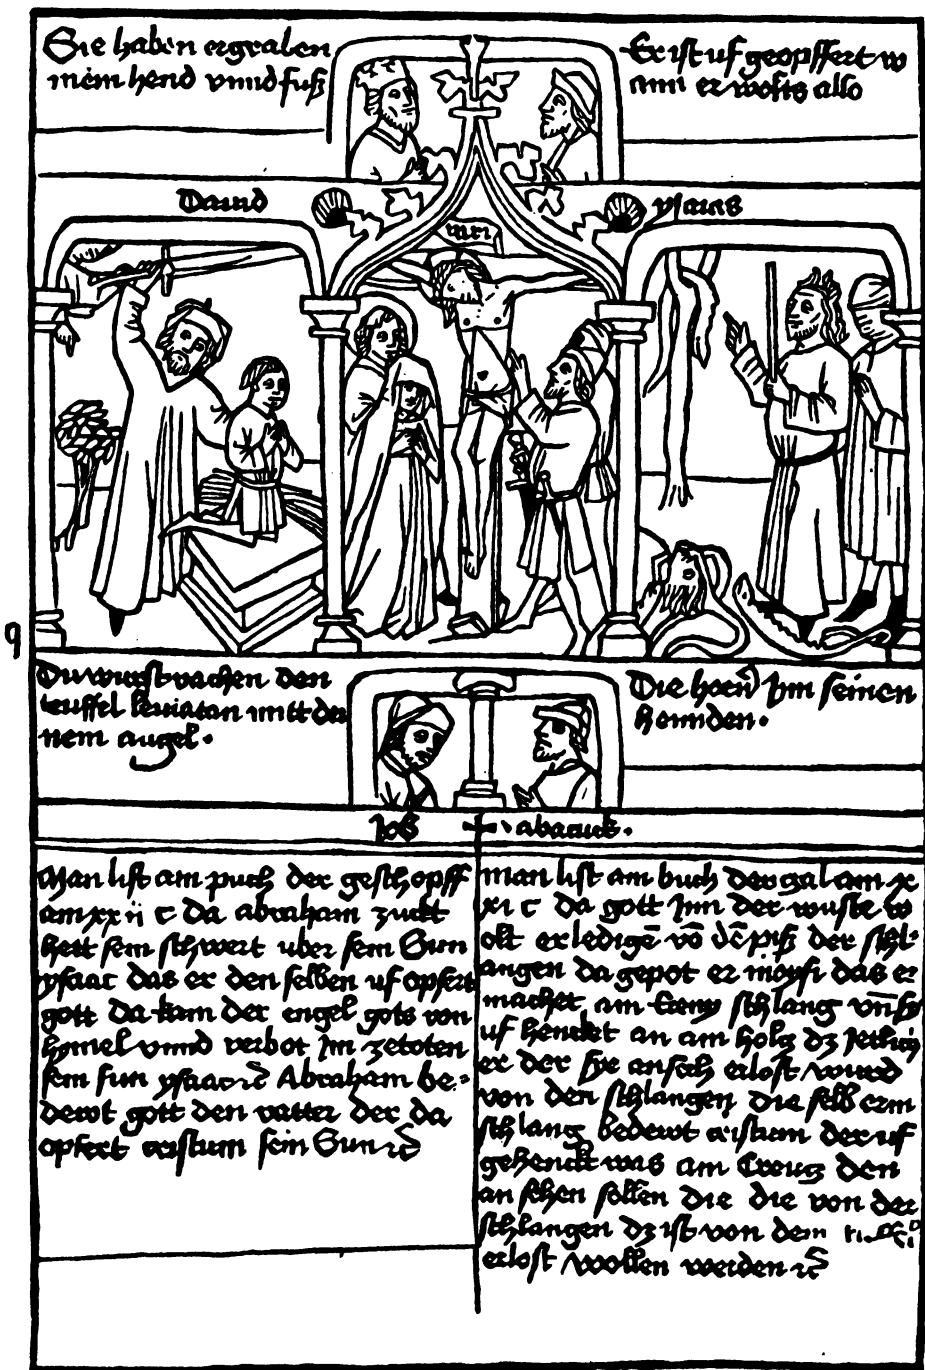 Sie haben ergraben
mein hend vnnd fuß
Er ist uf geopffert w
ann er wolts also
Dauid
ysaias
inri
q
Du wirst vachen den
teuffel leuiatan mitt dei
nem angel.
Die hoern Jm seinen
hennden.
Job
abacuck.
Man list am puch der geschopff
am xx ii c da abraham zuckt
hett sein schwert uber sein Sun
ysaac das er den selben uf opfert
gott da kam der engel gots von
hymel vnnd verbot Jm zetoten
sein sun ysaac ꝛc Abraham be⸗
dewt gott den vatter der da
opfert cristum sein Sun ꝛc
Man list am buch der zal am x
xi c da gott Jnn der wuste w
olt erledigē vō dē piß der schl⸗
angen da gepot er moysi das er
machet am Ereny schlang vn̄ sy
uf hencket an am holtz dz Jetlich
er der sye ansech erlost wurd
von den schlangen die selb erin
schlang bedewt cristum der uf
gehenckt was am Creutz den
an sehen sollen die die von der
schlangen dz ist von dem
erlost wollen werden ꝛc